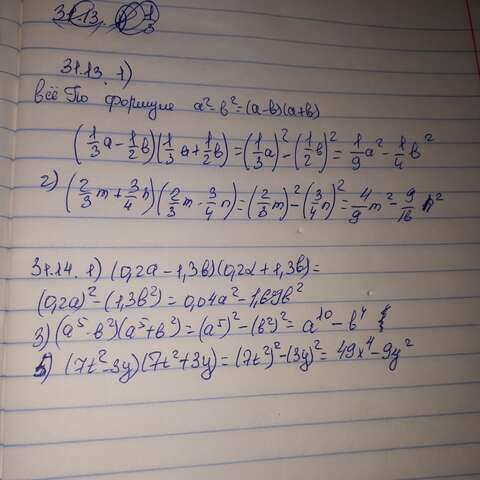 31.13.
31.13 1)
всё По формуле a²-b²=(a-b)(a+b)
(1/3a-1/2b)(1/3a+1/2b)=(1/3a)²-(1/2b)²=1/9a²-1/4b²
2) (2/3m+3/4n)(2/3m-3/4n)=(2/3m)²-(3/4n)²=4/9m²-9/16n²
31.14. 1) (0,2a-1,3b)(0,2a+1,3b)=
(0,2a)²-(1,3b²)=0,04a²-1,69b²
3) (a⁵-b²)(a⁵+b²)=(a⁵)²-(b²)²=a¹⁰-b⁴
5) (7t²-3y)(7t²+3y)=(7t²)²-(3y)²=49x⁴-9y²